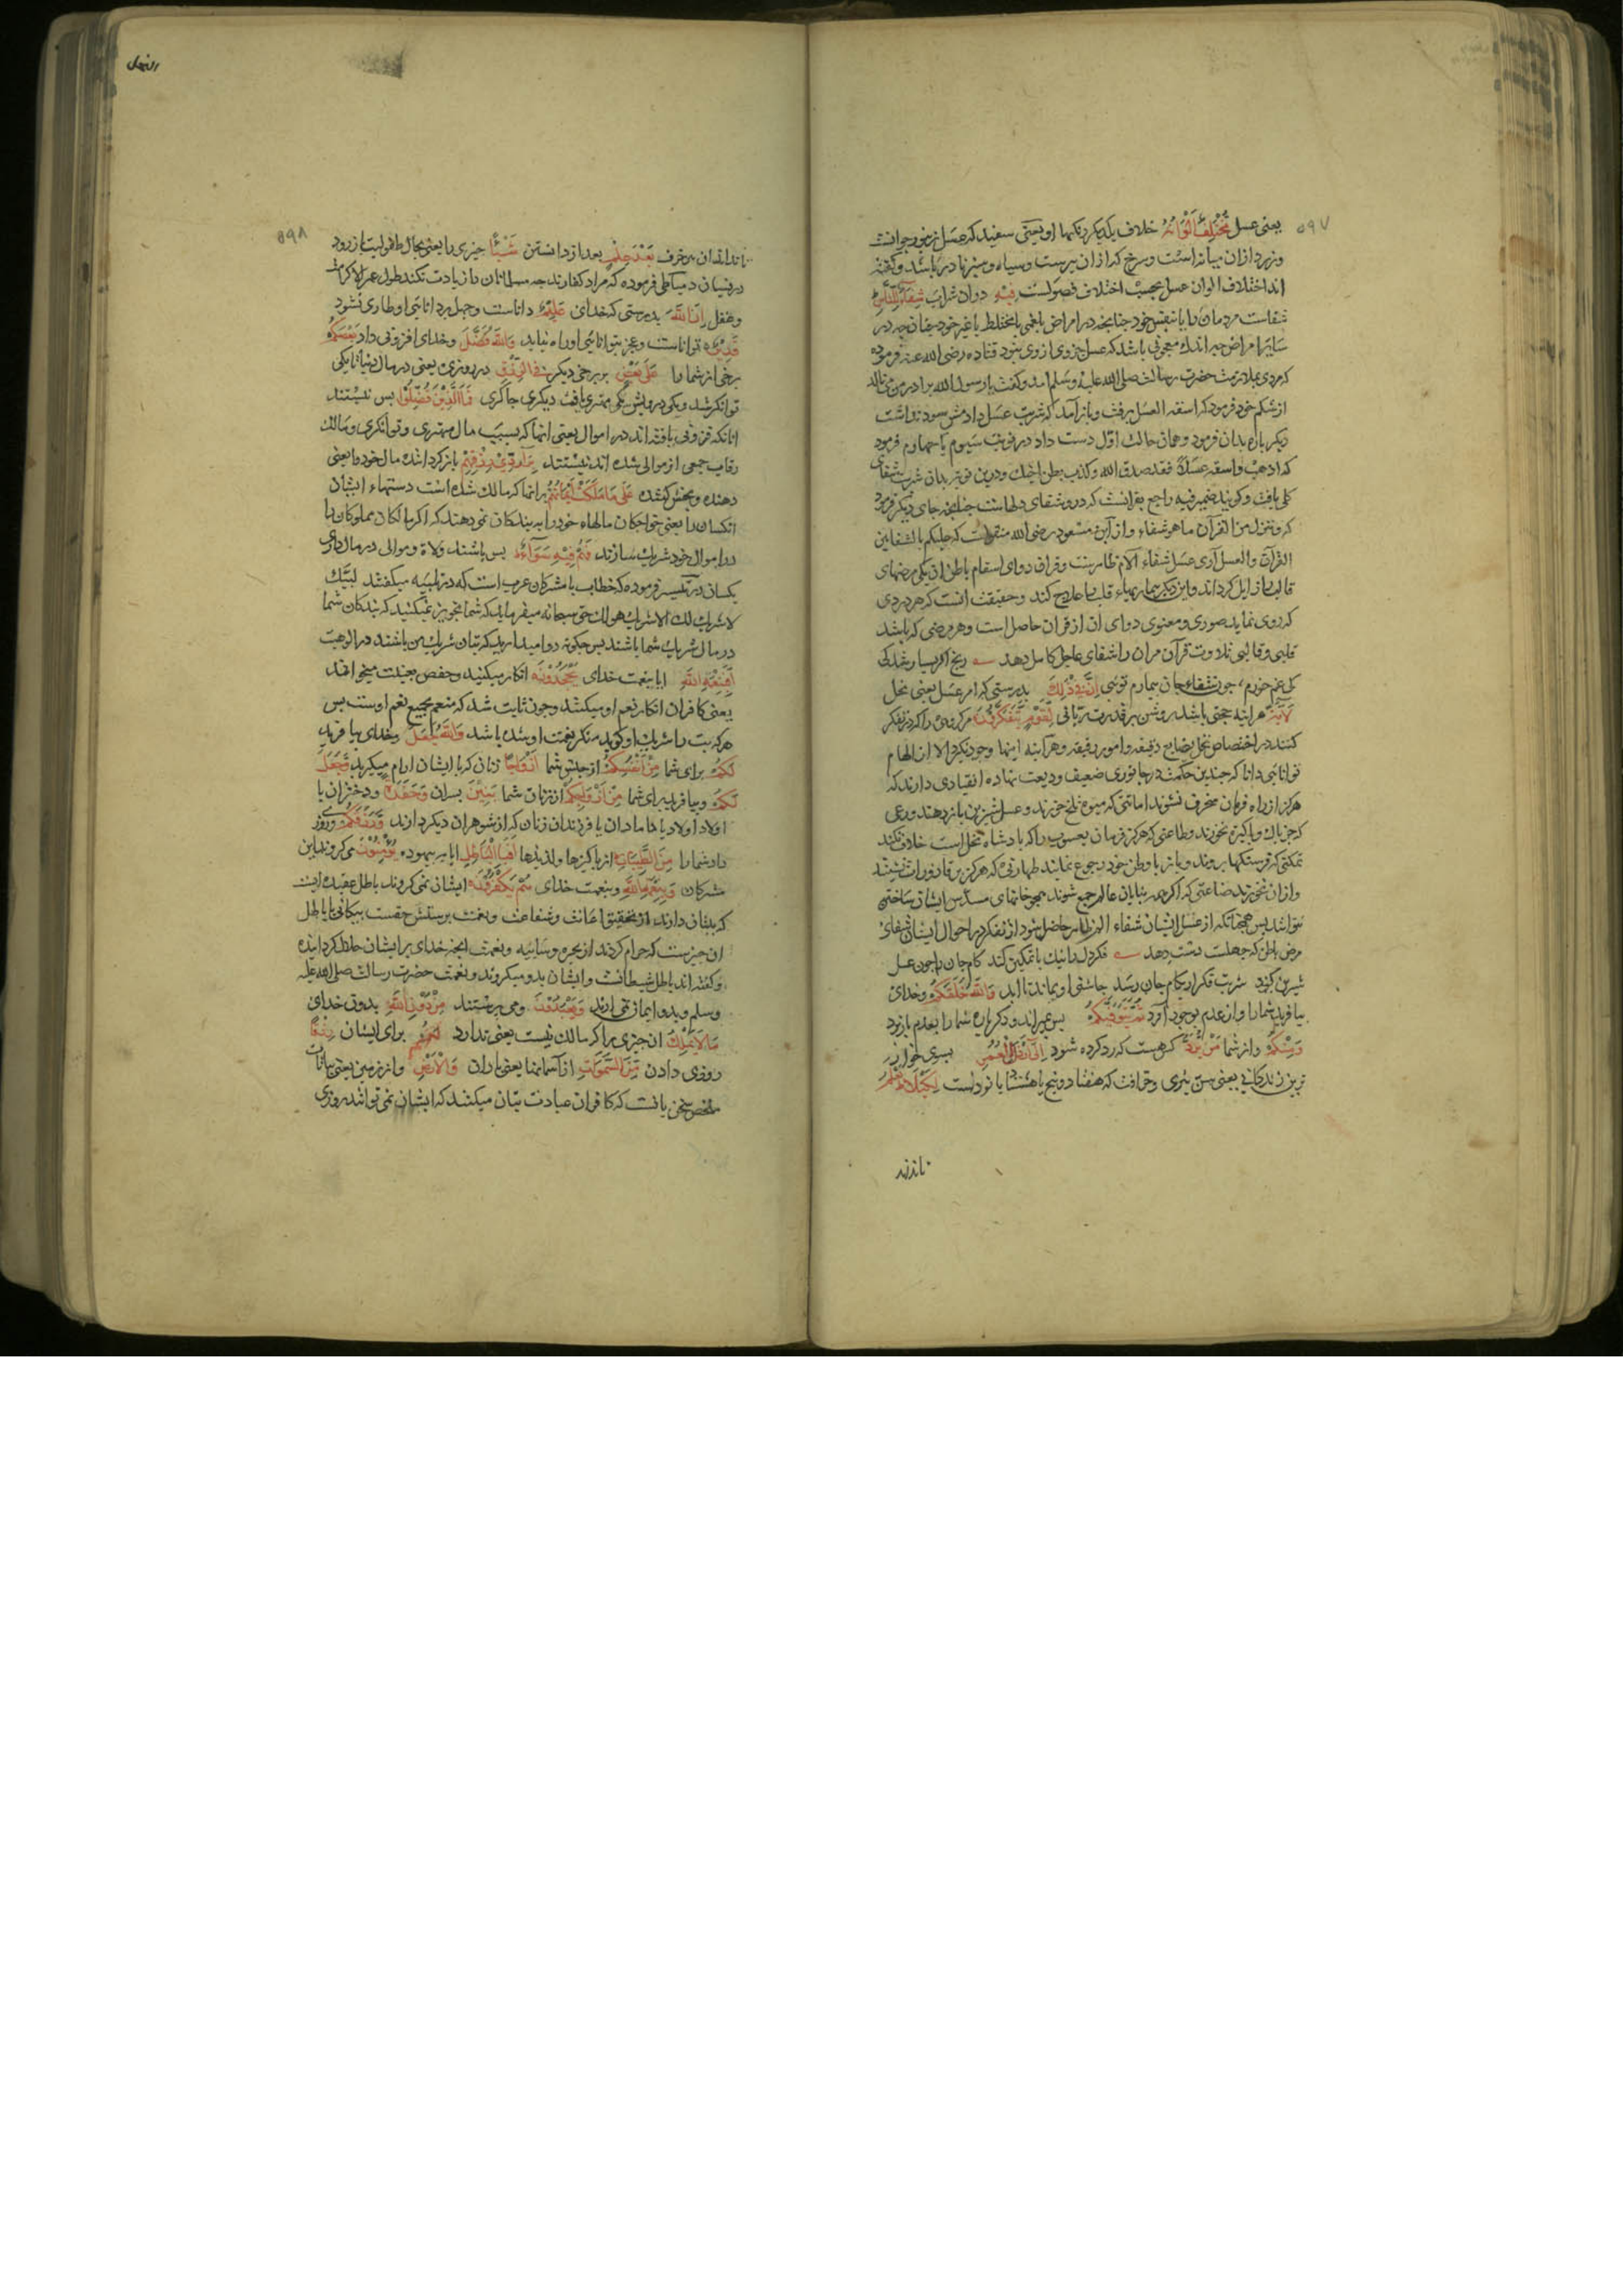 ۵۹۷
یعنی عسل مُخْتَلِفٌ اَلْوَانُهُ خلاف یکدیکر رنکها او یعنی سفید که عسل زنبور جوانست
و زرد از ان میانه است و سرخ که از ان پیرست و سیاه و سبز نادر باشد و کفته
اند اختلاف الوان عسل بحسب اختلاف فصولست فِیْهِ دران شراب شِفَآءٌ لِلنَّاسِ
شفاست مردمان را یا بنفس خود چنانچه در امراض بلغمی یا مختلط با غیر خود چنانچه در
سایر امراض چه اندک معجونی باشد که عسل جزوی از وی نبود قتاده رضی الله عنه فرموده
که مردی بملازمت حضرت رسالت صلی الله علیه وسلم امد و کفت یا رسول الله برادر من می نالد
از شکم خود فرمود که اسقه العسل برفت و باز آمد که شربت عسل دادمش سود نداشت
دیکر باره بدان فرمود و همان حالت اوّل دست داد در نوبت سیوم یا چهارم فرمود
که اذهب و اسقه عسلاً فقد صدق الله و کذب بطن اخیک و درین نوبت بدان شربت شفای
کلی یافت و کویند ضمیر فیه راجع بقرانست که درو شفای دلهاست چنانچه جای دیکر فرمود
که و ننزل من القرآن ما هو شفاء و از ابن مسعود رضی الله منقولست که علیکم بالشفاین
القرآن والعسل آری عسل شفاء آلام ظاهرست و قران دوای اسقام باطن ان یکی مرضهای
قالب را زایل کرداند و این دیکر بیماریهاء قلب را علاج کند و حقیقت انست که هر دردی
که روی نماید صوری و معنوی دوای ان از قران حاصل است و هر مرضی که باشد
قلبی و قالبی تلاوت قرآن مران را شفای عاجل کامل دهد رنج اکر بسیار شد کی
کی غم خورم، چون شفاء جان بیمارم توئی اِنَّ فِیْ ذٰلِكَ بدرستی که در امر عسل یعنی نحل
لَاٰیَةً هر اینه حجتی باشد روشن بر قدرت ربانی لِقَوْمٍ یَتَفَکَّرُوْنَ مر کروهی را که تفکر
کنند در اختصاص نحل بصنایع دقیقه و امور رقیقه و هر آینه اینها وجود نکیرد الا از الهام
توانائی دانا که چندین حکمت در جانوری ضعیف ودیعت نهاده انقیادی دارند که
هرکز از راه فرمان منحرف نشوند امانتی که میوه تلخ خورند و عسل شیرین باز دهند ورعی
که جز پاك و پاکیزه نخورند و طاعتی که هرکز فرمان یعسوب را که پادشاه نحل است خلاف نکنند
تمکنی که فرسنکها بروند و باز با وطن خود رجوع نمایند طهارتی که هرکز بر قاذورات ننشینند
و از ان نخورند صناعتی که اکر همه بنایان عالم جمع شوند همچو خانهای مسدّس ایشان ساختن
نتوانند پس همچنانکه از عسل ایشان شفاء الم ظاهر حاصل شود از تفکر در احوال ایشان شفای
مرض باطن که جهلست دست دهد فکر دل را نیك با تمکین کند کام جان را چون عسل
شیرین کند شربت فکر ار بکام جان رسد چاشنی او بماند تا ابد وَاللّٰهُ خَلَقَکُمْ و خدای
بیافرید شما را و از عدم بوجود آورد ثُمَّ یَتَوَفّٰیکُمْ پس بمیراند و دکرباره شما را بعدم باز برد
وَمِنْکُمْ و از شما مَنْ یُرَدُّ کس هست که رد کرده شود اِلٰی اَرْذَلِ الْعُمُرِ بسوی خوار
ترین زندکانی یعنی سن پیری و خرافت که هفتاد و پنج یا هشتاد یا نودست لِکَیْلَا یَعْلَمَ
تا نداند
النحل
۵۹۸
تا نداند ان پیر خرف بَعْدَ عِلْمٍ بعد از دانستن شَیْئًا چیزی را یعنی بحال طفولیت باز رود
وغفل اِنَّ اللّٰهَ بدرستی که خدای عَلِیْمٌ داناست و جهل بر دانائی او طاری نشود
قَدِیْرٌ تواناست و عجز بتوانائی او راه نیابد وَاللّٰهُ فَضَّلَ و خدای افزونی داد بَعْضَکُمْ
برخی از شما را عَلٰی بَعْضٍ بر برخی دیکر فِی الرِّزْقِ در روزی یعنی در مال دنیا تا یکی
توانکر شد و یکی درویش یکی مهتری یافت دیکری چاکری فَمَا الَّذِیْنَ فُضِّلُوْا پس نیستند
انانکه فزونی یافته اند در اموال یعنی انها که بسبب مال مهتری و توانکری و مالك
رقاب جمعی از موالی شده اند نیستند بِرَآدِّیْ رِزْقِهِمْ باز کرداننده مال خود را یعنی
دهنده و بخش کننده عَلٰی مَا مَلَکَتْ اَیْمَانُهُمْ برانها که مالك شده است دستهاء ایشان
انکسان را یعنی خواجکان مالهاء خود را به بندکان نمی دهند که اکر مالکان مملوکان را
در اموال خود شریك سازند فَهُمْ فِیْهِ سَوَآءٌ پس باشند ولاة و موالی در مال داری
یکسان در تفسیر فرموده که خطاب با مشرکان عرب است که در تلبیه میکفتند لبیك
لا شریك لك الا شریك هو لك حق سبحانه میفرماید که شما تجویز نمیکنید که بندکان شما
در مال شریك شما باشند پس چکونه روا میدارید که بتان شریك من باشند در الوهیت
اَفَبِنِعْمَةِ اللّٰهِ ایا بنعمت خدای یَجْحَدُوْنَ انکار میکنند و حفص بغیبت میخواند
یعنی کافران انکار نعم او میکنند و چون ثابت شد که منعم بجمیع نعم اوست پس
هرکه بت را شریك او کوید منکر نعمت او شده باشد وَاللّٰهُ جَعَلَ و خدای بیافرید
لَکُمْ برای شما مِنْ اَنْفُسِکُمْ از جنس شما اَزْوَاجًا زنان که با ایشان ارام میکیرید وَجَعَلَ
لَکُمْ و بیافرید برای شما مِنْ اَزْوَاجِکُمْ از زنان شما بَنِیْنَ پسران وَحَفَدَةً و دختران یا
اولاد اولاد یا دامادان یا فرزندان زنان که از شوهران دیکر دارند وَرَزَقَکُمْ و روزی
داد شما را مِنَ الطَّیِّبَاتِ از پاکیزها و لذیذها اَفَبِالْبَاطِلِ ایا به بیهوده یُؤْمِنُوْنَ می کروند این
مشرکان وَبِنِعْمَةِ اللّٰهِ و بنعمت خدای هُمْ یَکْفُرُوْنَ ایشان نمی کروند باطل عقیده ایست
ان چیزست که حرام کردند از بحیره و سائبه و نعمت انچه خدای بر ایشان حلال کردانیده
و کفته اند باطل شیطانست و ایشان بدو میکروند و نعمت حضرت رسالت صلی الله علیه
وسلم و بدو ایمان نمی ارند وَیَعْبُدُوْنَ و می پرستند مِنْ دُوْنِ اللّٰهِ بدون خدای
مَا لَا یَمْلِكُ ان چیزی را که مالك نیست یعنی ندارد لَهُمْ برای ایشان رِزْقًا
روزی دادن مِنَ السَّمٰوَاتِ از آسمانها یعنی باران وَالْاَرْضِ و از زمین یعنی نباتات
ملخص سخن یا نست که کافران عبادت بتان میکنند که ایشان نمی توانند روزی